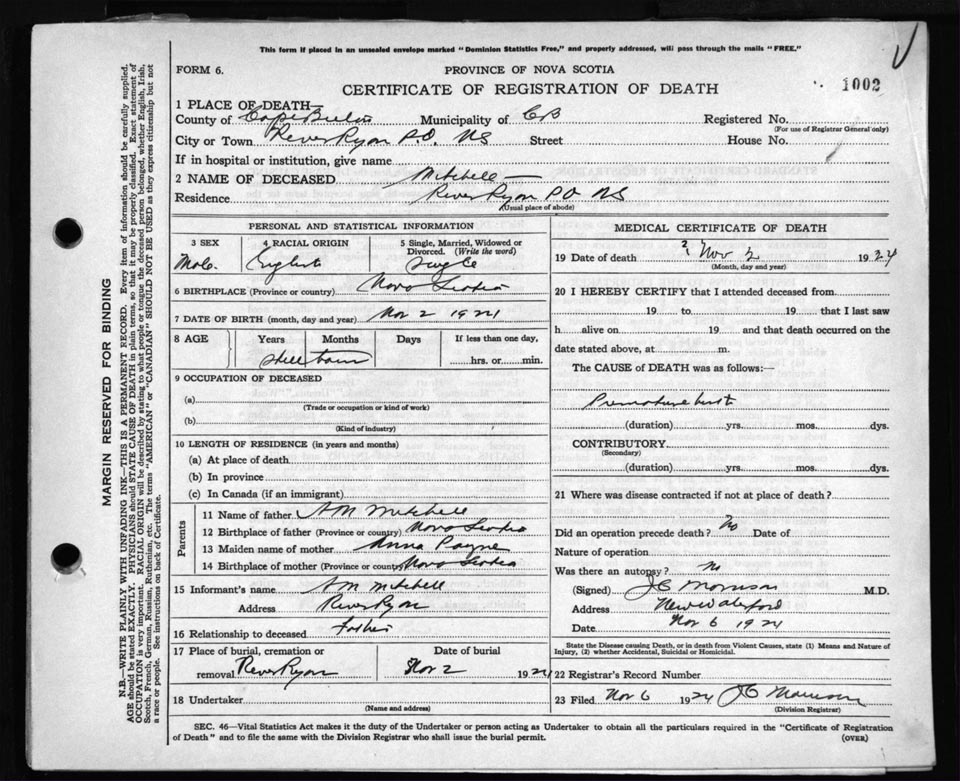 This form if placed in an unsealed envelope marked "Dominion Statistics Free," and properly addressed, will pass through the mails "FREE."
FORM 6.
PROVINCE OF NOVA SCOTIA
CERTIFICATE OF REGISTRATION OF DEATH
1002
1 PLACE OF DEATH—
County of Cape Breton Municipality of CB Registered No.
(For use of Registrar General only)
City or Town River Ryan P.O. NS Street House No.
If in hospital or institution, give name
2 NAME OF DECEASED Mitchell —
Residence River Ryan PO NS
(Usual place of abode)
PERSONAL AND STATISTICAL INFORMATION
3 SEX
4 RACIAL ORIGIN
5 Single, Married, Widowed or Divorced. (Write the word)
Male English Single
6 BIRTHPLACE (Province or country) Nova Scotia
7 DATE OF BIRTH (month, day and year) Nov 2 1924
8 AGE Years Months Days If less than one day,
Still born
hrs. or min.
9 OCCUPATION OF DECEASED
(a)
(Trade or occupation or kind of work)
(b)
(Kind of industry)
10 LENGTH OF RESIDENCE (in years and months)
(a) At place of death
(b) In province
(c) In Canada (if an immigrant)
Parents
11 Name of father AM Mitchell
12 Birthplace of father (Province or country) Nova Scotia
13 Maiden name of mother Anna Payne
14 Birthplace of mother (Province or country) Nova Scotia
15 Informant's name AM Mitchell
Address River Ryan
16 Relationship to deceased father
17 Place of burial, cremation or removal River Ryan
Date of burial
Nov 2 1924
18 Undertaker
(Name and address)
MEDICAL CERTIFICATE OF DEATH
19 Date of death Nov 2 1924
(Month, day and year)
20 I HEREBY CERTIFY that I attended deceased from
19 to 19 that I last saw
h alive on 19 and that death occurred on
date stated above, at m.
The CAUSE of DEATH was as follows:—
Premature birth
(duration) yrs. mos. dys.
CONTRIBUTORY
(Secondary)
(duration) yrs. mos. dys.
21 Where was disease contracted if not at place of death?
Did an operation precede death? No Date of
Nature of operation
Was there an autopsy? No
(Signed) JC Morrison M.D.
Address New Waterford
Date Nov 6 1924
State the Disease causing Death, or in death from Violent Causes, state (1) Means and Nature of
Injury, (2) whether Accidental, Suicidal or Homicidal.
22 Registrar's Record Number
23 Filed Nov 6 1924 JC Morrison
(Division Registrar)
SEC. 46—Vital Statistics Act makes it the duty of the Undertaker or person acting as Undertaker to obtain all the particulars required in the "Certificate of Registration
of Death" and to file the same with the Division Registrar who shall issue the burial permit.
(OVER)
MARGIN RESERVED FOR BINDING
N.B.—WRITE PLAINLY WITH UNFADING INK—THIS IS A PERMANENT RECORD. Every item of information should be carefully supplied.
AGE should be stated EXACTLY. PHYSICIANS should STATE CAUSE OF DEATH in plain terms, so that it may be properly classified. Exact statement of
OCCUPATION is very important. RACIAL ORIGIN will be described by stating to what people or tongue the deceased person belonged, whether English, Irish,
Scotch, French, German, Russian, Ruthenian, etc. The terms "AMERICAN" or "CANADIAN" SHOULD NOT BE USED as they express citizenship but not
a race or people. See instructions on back of Certificate.